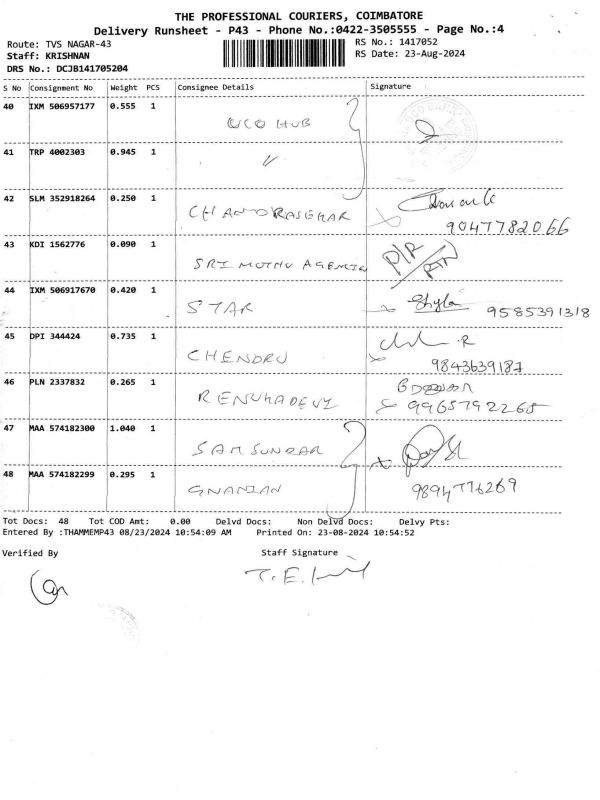 THE PROFESSIONAL COURIERS, COIMBATORE
Delivery Runsheet - P43 - Phone No.:0422-3505555 - Page No.:4
Route: TVS NAGAR-43 RS No.: 1417052
Staff: KRISHNAN RS Date: 23-Aug-2024
DRS No.: DCJB141705204
S No Consignment No Weight PCS Consignee Details Signature
40 IXM 506957177 0.555 1 UCO HUB
41 TRP 4002303 0.945 1 〃
42 SLM 352918264 0.250 1 CHANDRASEKAR
9047782066
43 KDI 1562776 0.090 1 SRI MUTHU AGENCIES
44 IXM 506917670 0.420 1 STAR Shyla 9585391318
45 DPI 344424 0.735 1 CHENDRU
9843639187
46 PLN 2337832 0.265 1 RENUKADEVI
9965792268
47 MAA 574182300 1.040 1 SAM SUNDAR
48 MAA 574182299 0.295 1 GNANIAN 9894776269
Tot Docs: 48 Tot COD Amt: 0.00 Delvd Docs: Non Delvd Docs: Delvy Pts:
Entered By :THAMMEMP43 08/23/2024 10:54:09 AM Printed On: 23-08-2024 10:54:52
Verified By Staff Signature